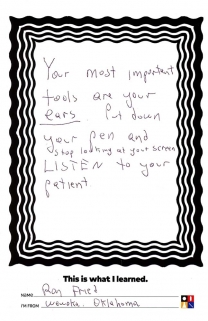 Your most important
tools are your
ears. Put down
your pen and
stop looking at your screen
LISTEN to your
patient.
This is what I learned.
NAME Ron Fried
I'M FROM Wewoka, Oklahoma